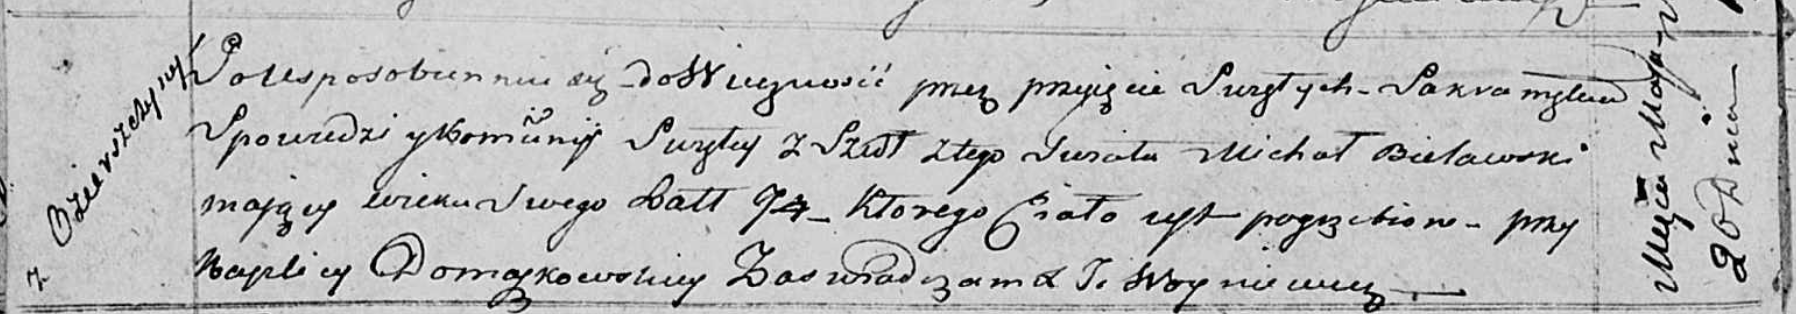 z Bzierszczyny
Po Usposobienniu się do Wiecznosci przez przyięcie Swiętych Sakramętuw
Spowiedzi y Komunij Swiętey z Szedł z tego Swiata Michał Bielawski
mający wieku Swego Latt 74 Ktorego Ciało iest pogrzebione przy
Kaplicy Domaszkowskiey Zaswiadczam X J. Woyniewicz
Miesiąca Maja
20 Dnia